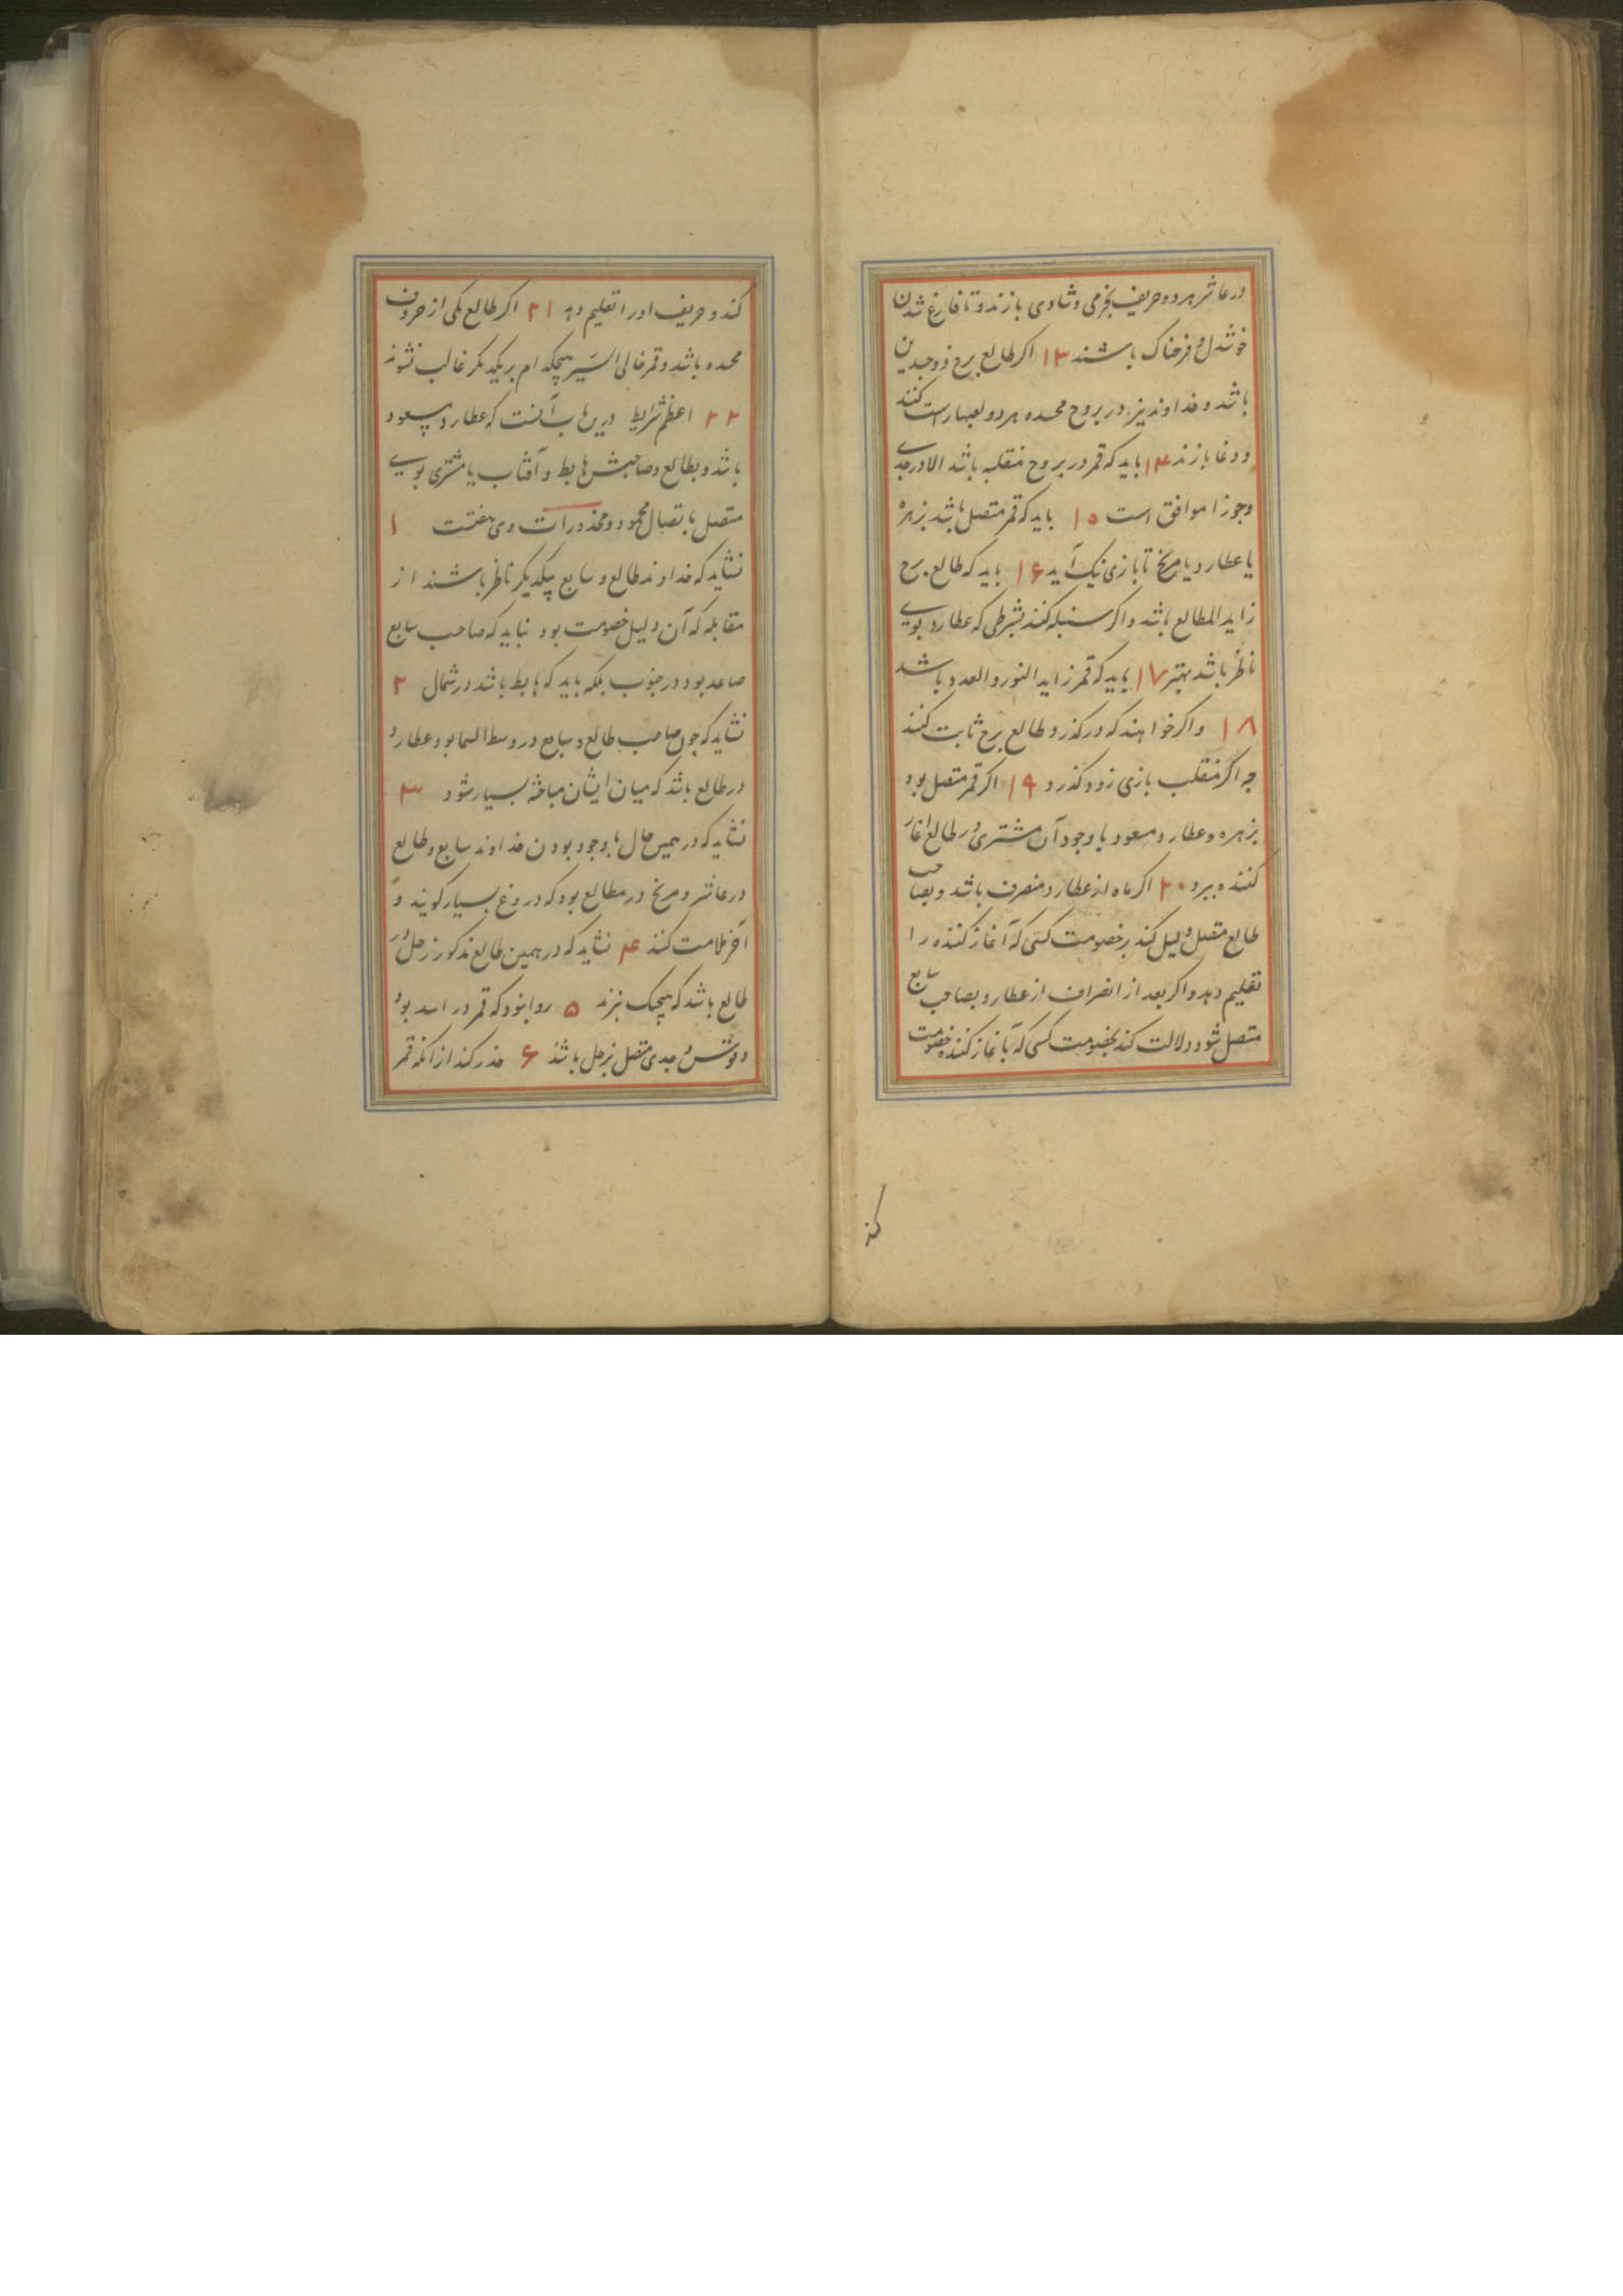 در عاشر هر دو حریف بخرمی و شادی بازند و تا فارغ شدن
خوشدل و فرحناک باشند ۱۳ اکر طالع برج ذوجسدین
باشد و خداوند نیز در بروج مجسده هر دو لعبها راست کنند
و دغا بازند ۱۴ باید که قمر در بروج منقلبه باشد الا در جدی
وجوزا موافق است ۱۵ باید که قمر متصل باشد بزهره
یا عطارد یا مریخ تا بازی نیک آید ۱۶ باید که طالع برج
زاید المطالع باشد و اکر سنبله کنند بشرطی که عطارد بوی
ناظر باشد بهتر ۱۷ باید که قمر زاید النور و العدد باشد
۱۸ و اکر خواهند که در کذرد طالع برج ثابت کنند
چه اکر منقلب بازی زود کذرد ۱۹ اکر قمر متصل بود
بزهره و عطارد مسعود با وجود آن مشتری در طالع اغاز
کننده ببرد ۲۰ اکر ماه از عطارد منصرف باشد و بصاحب
طالع متصل دلیل کند بر خصومت کسی که آغاز کننده را
تعلیم دهد و اکر بعد از انصراف از عطارد بصاحب سابع
متصل شود دلالت کند بخصومت کسی که با آغاز کننده خصومت
کند
کند و حریف او را تعلیم دهد ۲۱ اکر طالع یکی از
مجسده باشد و قمر خالی السیر هیچکدام بر یکدیکر غالب نشوند
۲۲ اعظم شرایط درین باب آنست که عطارد مسعود
باشد و بطالع و صاحبش هابط و آفتاب یا مشتری بوی
متصل باتصال محمود و محذورات وی هفتست ۱
نشاید که خداوند طالع و سابع بیکدیکر ناظر باشند از
مقابله که آن دلیل خصومت بود نباید که صاحب سابع
صاعد بود در جنوب بلکه باید که هابط باشد در شمال ۲
نشاید که چون صاحب طالع و سابع در وسط السما بود عطارد
در طالع باشد که میان ایشان مباحثه بسیار شود ۳
نشاید که در همین حال با وجود بودن خداوند سابع و طالع
در عاشر و مریخ در مطالع بود که دروغ بسیار کویند و
آخر ملامت کنند ۴ نشاید که در همین طالع مذکور زحل در
طالع باشد که هیچیک نبرند ۵ روا نبود که قمر در اسد بود
و قوس و جدی متصل بزحل باشد ۶ حذر کند از انکه قمر